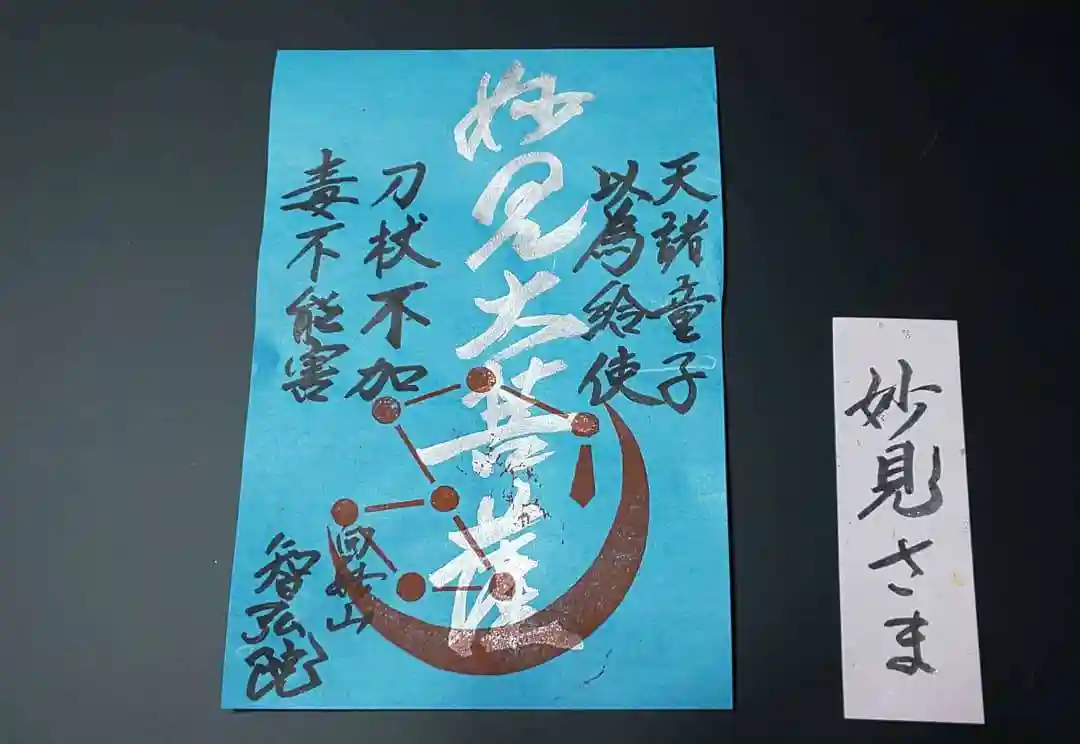 天諸童子
以為給使
妙見大菩薩
刀杖不加
毒不能害
妙見さま